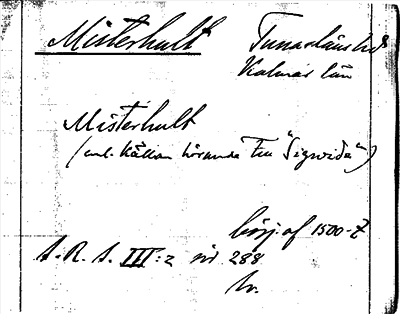 Misterhult Tunaläns hd
Kalmar län
Misterhult
(enl. källan hörande t "Sigwida")
börj. af 1500-t
S.R.S. III:2 nr 288